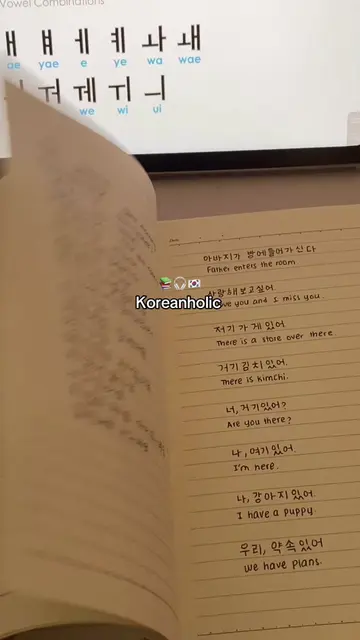 Vowel Combinations
ㅐ ㅒ ㅔ ㅖ ㅘ ㅙ
ae yae e ye wa wae
ㅝ ㅞ ㅟ ㅢ
we wi ui
Date.
아바지가 방에들어가신다
Father enters the room
📚🎧🇰🇷
Koreanholic
사랑해보고싶어.
you and I miss you
저기 가게 있어.
There is a store over there.
거기 김치 있어.
There is kimchi.
너, 거기있어?
Are you there?
나, 여기 있어.
I'm here.
나, 강아지 있어.
I have a puppy.
우리, 약속 있어
We have plans.